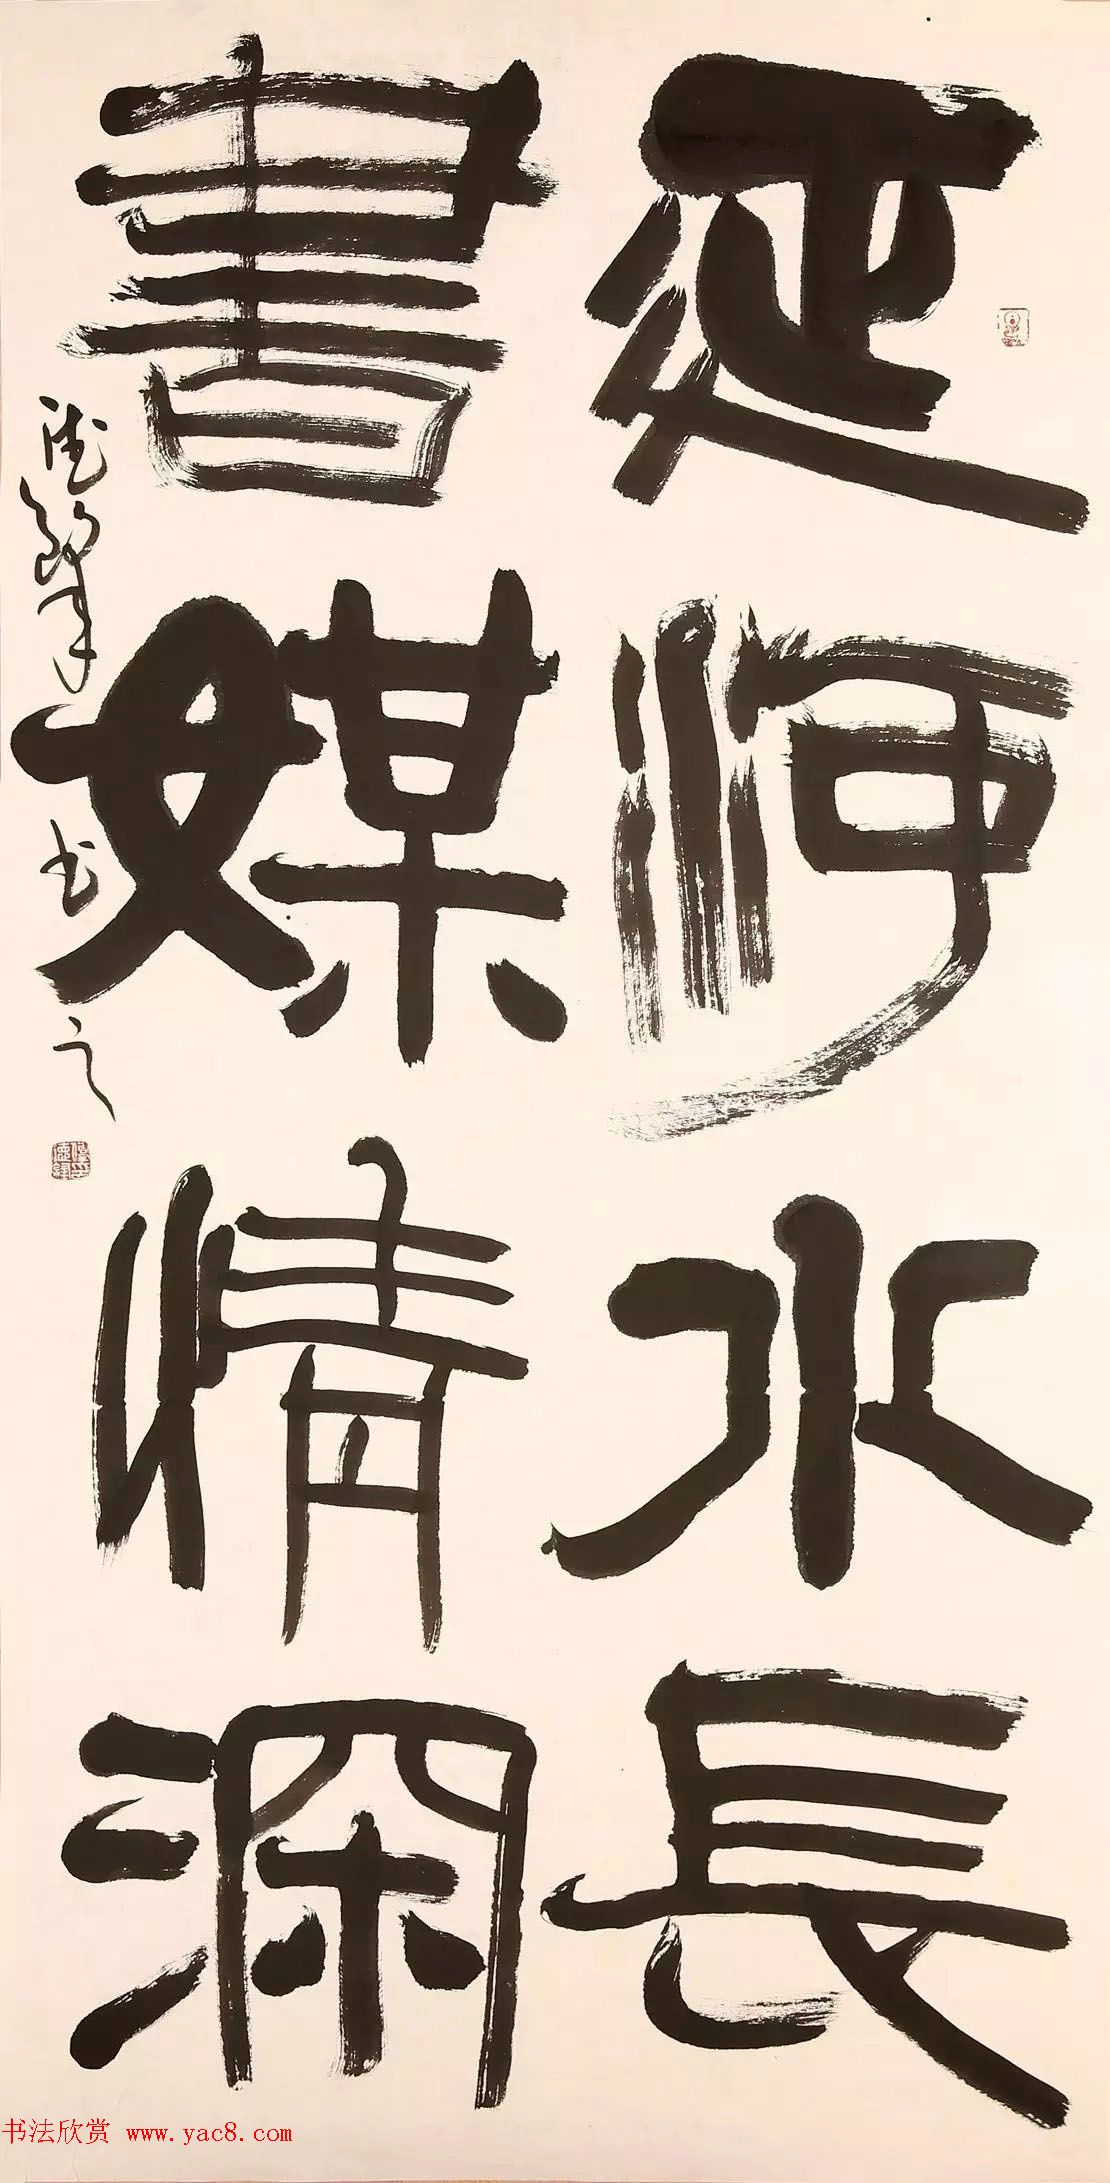 延河水長
書媒情深
书之
书法欣赏 www.yac8.com